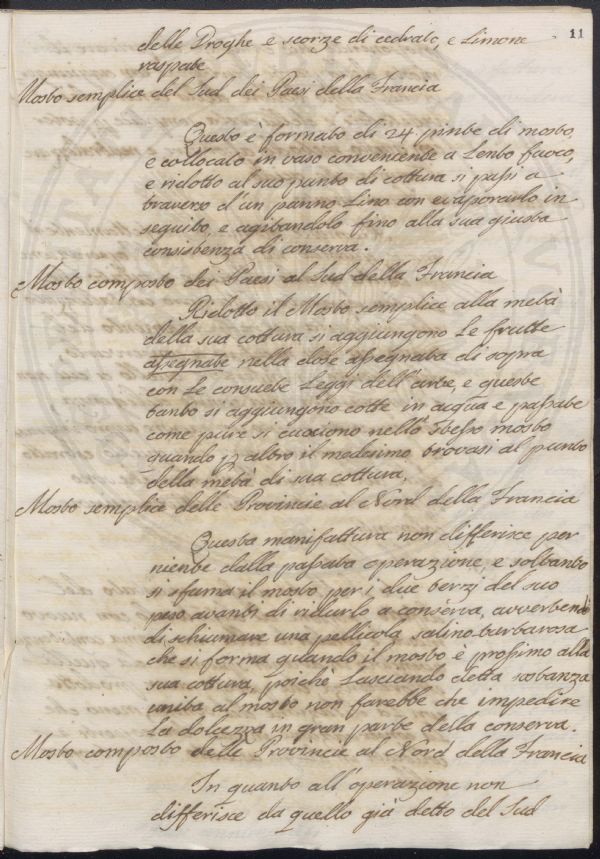 11
delle Droghe e scorze di cedrato, e Limone
raspate
Mosto semplice del Sud dei Paesi della Francia
Questo è formato di 24. pinte di mosto,
e collocato in vaso conveniente a Lento fuoco,
e ridotto al suo punto di cottura si passi a
traverso d'un panno Lino con evaporarlo in
seguito, e agitandolo fino alla sua giusta
consistenza di conserva.
Mosto composto dei Paesi al Sud della Francia
Ridotto il Mosto semplice alla metà
della sua cottura si aggiungono Le frutte
assegnate nella dose assegnata di sopra
con Le consuete Leggi dell'arte, e queste
tanto si aggiungono cotte in acqua e passate
come pure si cuociono nello stesso mosto
quando altro il medesimo trovasi al punto
della metà di sua cottura.
Mosto semplice delle Provincie al Nord della Francia
Questa manifattura non differisce per
niente dalla passata operazione, e soltanto
si sfuma il mosto per i due terzi del suo
peso avanti di ridurlo a conserva, avvertendo
di schiumare una pellicola salino-tartarosa
che si forma quando il mosto è prossimo alla
sua cottura, poichè Lasciando detta sostanza
unita al mosto non farebbe che impedire
La dolcezza in gran parte della conserva.
Mosto composto delle Provincie al Nord della Francia
In quanto all'operazione non
differisce da quello già detto del Sud